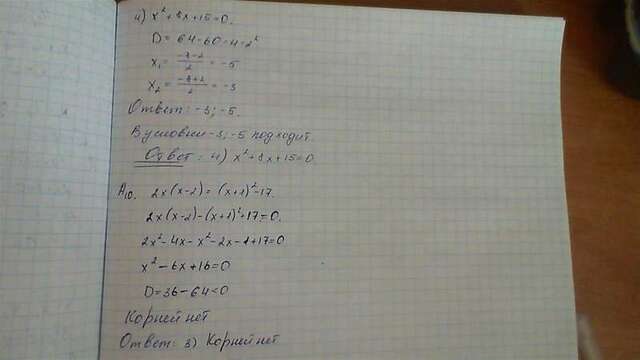 4) x² + 8x + 15 = 0.
D = 64 - 60 = 4 = 2²
x₁ = (-8-2)/2 = -5
x₂ = (-8+2)/2 = -3
Ответ: -3; -5.
В условии -3; -5 подходит.
Ответ: 4) x² + 8x + 15 = 0.
A10. 2x(x-2) = (x+1)² - 17.
2x(x-2) - (x+1)² + 17 = 0.
2x² - 4x - x² - 2x - 1 + 17 = 0
x² - 6x + 16 = 0
D = 36 - 64 < 0
Корней нет
Ответ: 3) Корней нет